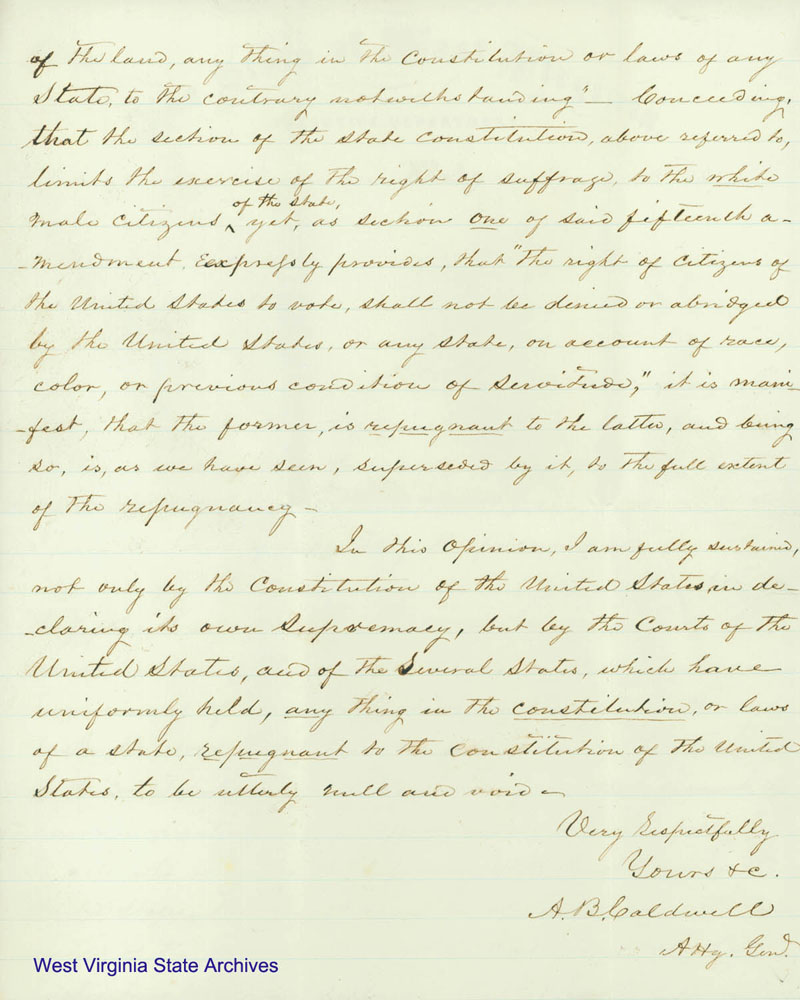 of the land, any thing in the constitution or laws of any
State, to the contrary notwithstanding" — Conceeding,
that the section of the state constitution, above referred to,
limits the exercise of the right of suffrage, to the white
of the state,
male citizens ‸ yet, as section one of said fifteenth a-
-mendment. Expressly provides, that "the right of citizens of
the United States to vote, shall not be denied or abridged
by the United States, or any state, on account of race,
color, or previous condition of servitude," it is mani-
-fest, that the former, is repugnant to the latter, and being
so, is, as we have seen, superseded by it, to the full extent
of the repugnancy —
In this Opinion, I am fully sustained,
not only by the Constitution of the United States, in de-
-claring its own Supremacy, but by the Courts of the
United States, and of the Several States, which have
uniformly held, any thing in the constitution, or laws
of a state, repugnant to the constitution of the United
States, to be utterly null and void —
Very Respectfully
Yours &c.
A. B. Caldwell
Atty. Genl.
West Virginia State Archives